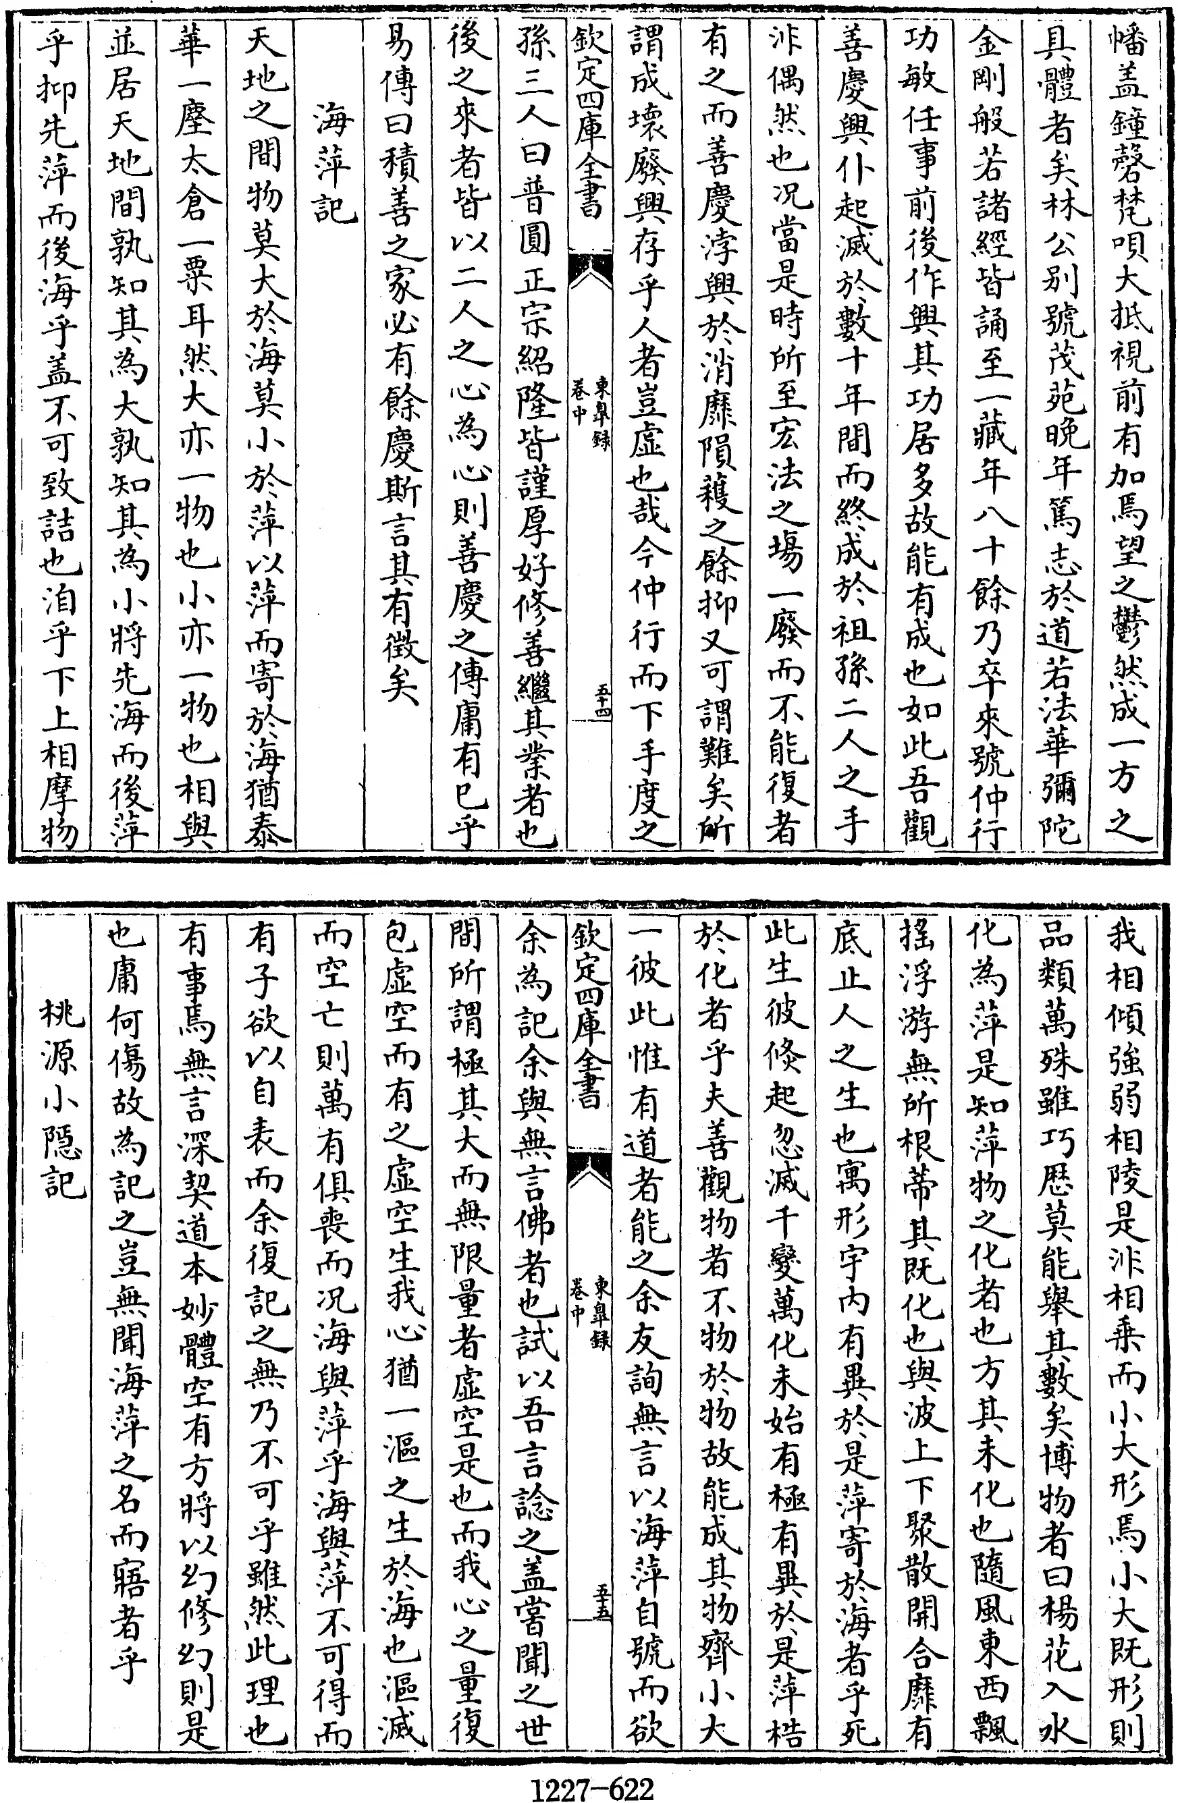 幡盖鐘磬梵唄大抵視前有加焉望之鬱然成一方之
具體者矣林公别號茂苑晚年篤志於道若法華彌陀
金剛般若諸經皆誦至一藏年八十餘乃卒來號仲行
功敏任事前後作興其功居多故能有成也如此吾觀
善慶興仆起滅於數十年間而終成於祖孫二人之手
非偶然也况當是時所至宏法之場一廢而不能復者
有之而善慶浡興於消靡隕穫之餘抑又可謂難矣所
謂成壞廢興存乎人者豈虛也哉今仲行而下手度之
欽定四庫全書
東臯録
卷中
五十四
孫三人曰普圓正宗紹隆皆謹厚好修善繼其業者也
後之來者皆以二人之心為心則善慶之傳庸有已乎
易傳曰積善之家必有餘慶斯言其有徵矣
海萍記
天地之間物莫大於海莫小於萍以萍而寄於海猶泰
華一塵太倉一粟耳然大亦一物也小亦一物也相與
並居天地間孰知其為大孰知其為小將先海而後萍
乎抑先萍而後海乎盖不可致詰也洎乎下上相摩物
我相傾強弱相陵是非相乗而小大形焉小大既形則
品類萬殊雖巧厯莫能舉其數矣博物者曰楊花入水
化為萍是知萍物之化者也方其未化也隨風東西飄
摇浮游無所根蒂其既化也與波上下聚散開合靡有
底止人之生也寓形宇内有異於是萍寄於海者乎死
此生彼倐起忽滅千變萬化未始有極有異於是萍梏
於化者乎夫善觀物者不物於物故能成其物齊小大
一彼此惟有道者能之余友詢無言以海萍自號而欲
欽定四庫全書
東臯録
卷中
五十五
余為記余與無言佛者也試以吾言諗之盖嘗聞之世
間所謂極其大而無限量者虛空是也而我心之量復
包虛空而有之虛空生我心猶一漚之生於海也漚滅
而空亡則萬有俱喪而况海與萍乎海與萍不可得而
有子欲以自表而余復記之無乃不可乎雖然此理也
有事焉無言深契道本妙體空有方將以幻修幻則是
也庸何傷故為記之豈無聞海萍之名而寤者乎
桃源小隱記
1227-622